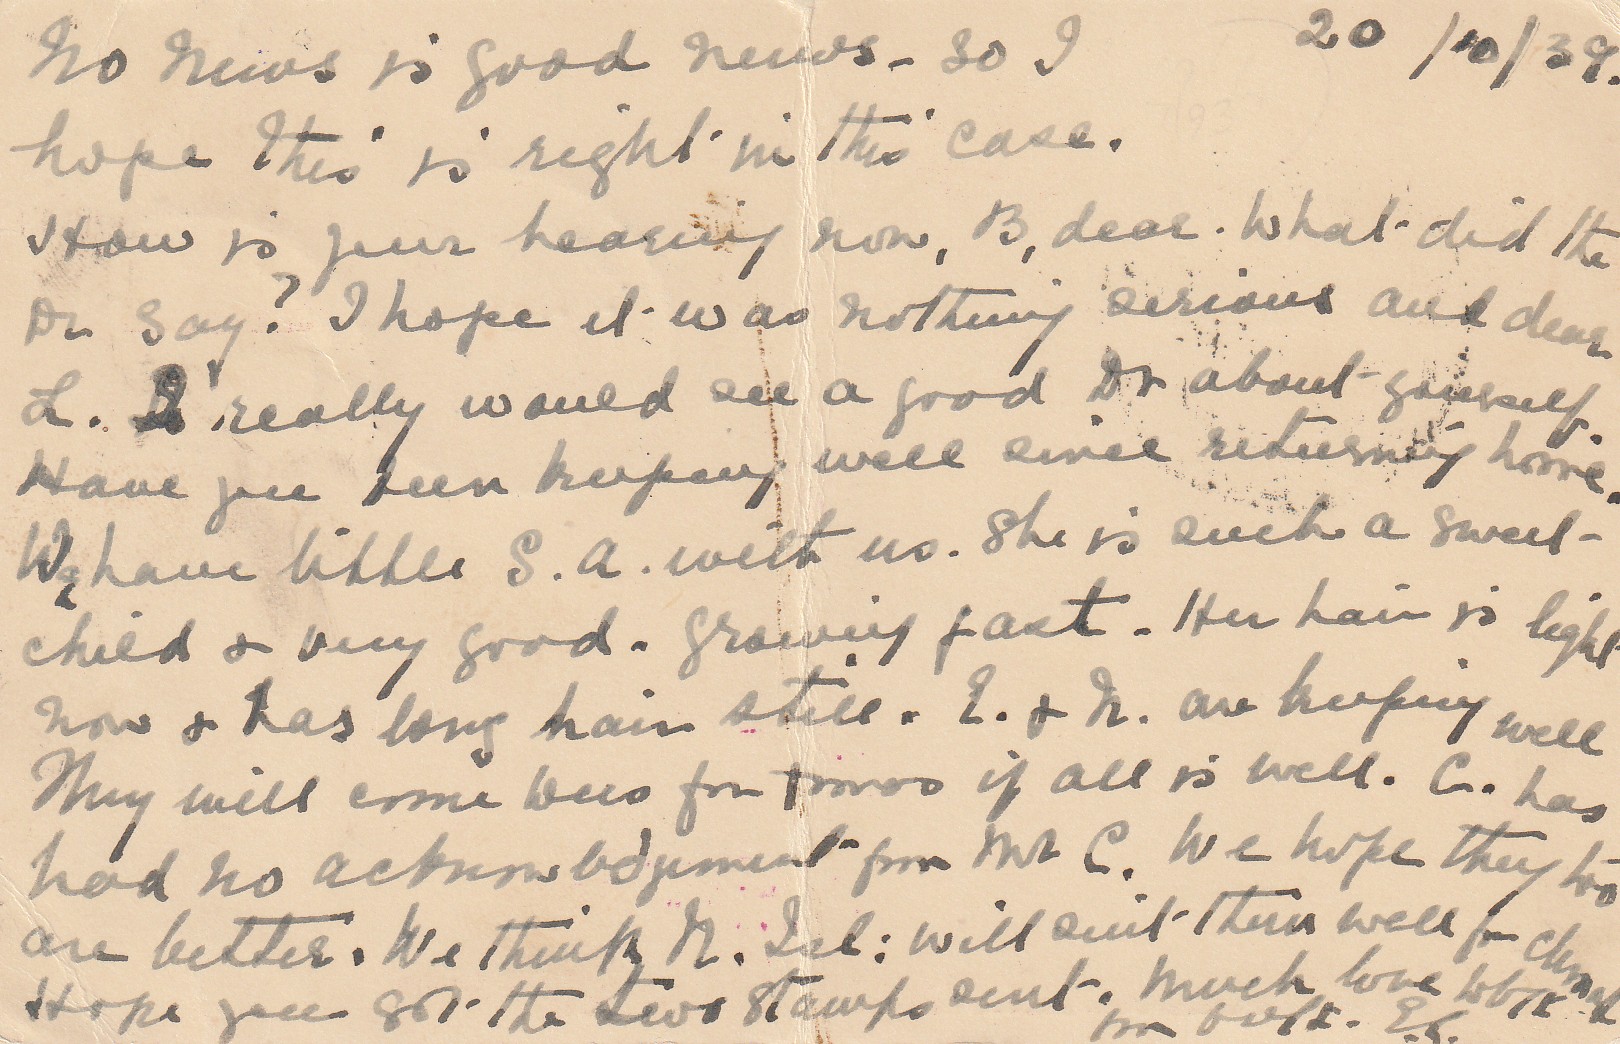 20/10/39.
No news is good news - so I
hope this is right in this case.
How is your hearing now, B, dear. What did the
Dr say? I hope it was nothing serious and dear
L. I really would see a good Dr about yourself.
Have you been keeping well since returning home.
We have little S. A. with us. She is such a sweet
child & very good. Growing fast. Her hair is light
now & has long hair still. & N. are keeping well
They will come for if all is well. C. has
had no acknowledgement from Mr C. We hope they too
are better. We think N. Isl: will suit them well for climate
Hope you got the two stamps sent. Much love to both
from both. E.G.